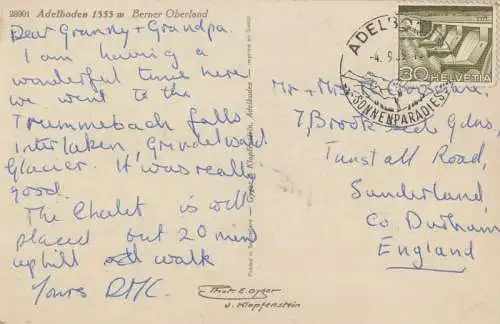 28901 Adelboden 1355 m Berner Oberland
Dear Granny + Grandpa.
I am having a
wonderful time here
we went to the
Trummebach falls
Interlaken, Grindelwald
Glacier. It was really
good.
The Chalet is well
placed but 20 mins
uphill walk
Yours
Gyger & Klopfenstein, Adelboden
Phot. E. Gyger
u. Klopfenstein
ADELBODEN
-4.9.
SONNENPARADIES
30 HELVETIA
Mr + Mrs
7, Brook Gdns,
Tunstall Road,
Sunderland,
Co. Durham
England